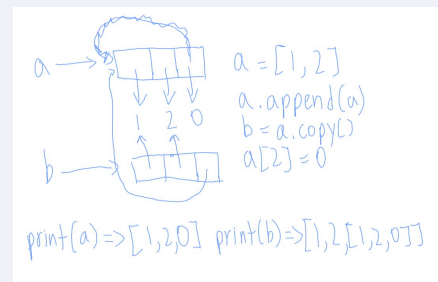 a
a = [1,2]
a.append(a)
1 2 0
b = a.copy()
b
a[2] = 0
print(a) => [1,2,0] print(b) => [1,2,[1,2,0]]